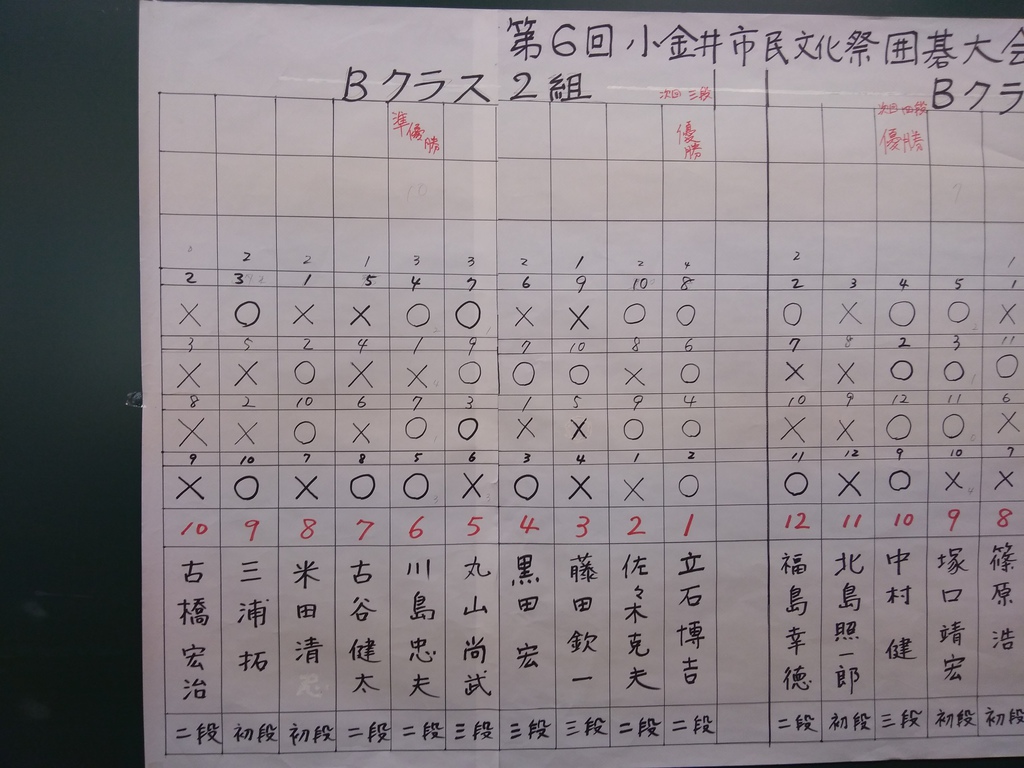 第6回 小金井市民文化祭囲碁大会
Bクラス 2組
Bクラ
次回 三段
次回 四段
準優勝
優勝
優勝
10
7
2 2 1 3 3 2 1 2 4 2 1
2 3 1 5 4 7 6 9 10 8 2 3 4 5 1
× ○ × × ○ ○ × × ○ ○ ○ × ○ ○ ×
3 5 2 4 1 9 7 10 8 6 7 8 2 3 11
× × ○ × × ○ ○ ○ × ○ × × ○ ○ ○
8 2 10 6 7 3 1 5 9 4 10 9 12 11 6
× × ○ × ○ ○ × × ○ ○ × × ○ ○ ×
9 10 7 8 5 6 3 4 1 2 11 12 9 10 7
× ○ × ○ ○ × ○ × × ○ ○ × ○ × ×
10 9 8 7 6 5 4 3 2 1 12 11 10 9 8
古橋宏治
三浦拓
米田清
古谷健太
川島忠夫
丸山尚武
黒田宏
藤田欽一
佐々木克夫
立石博吉
福島幸徳
北島照一郎
中村健
塚口靖宏
篠原浩
二段 初段 初段 二段 二段 三段 三段 三段 二段 二段 二段 初段 三段 初段 初段